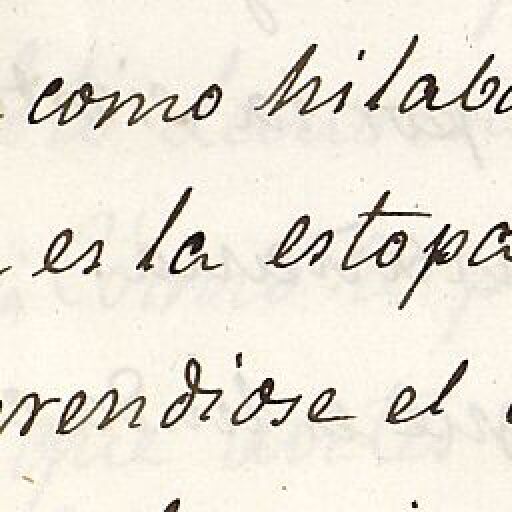 como hilab
es la estopa
rendiose el